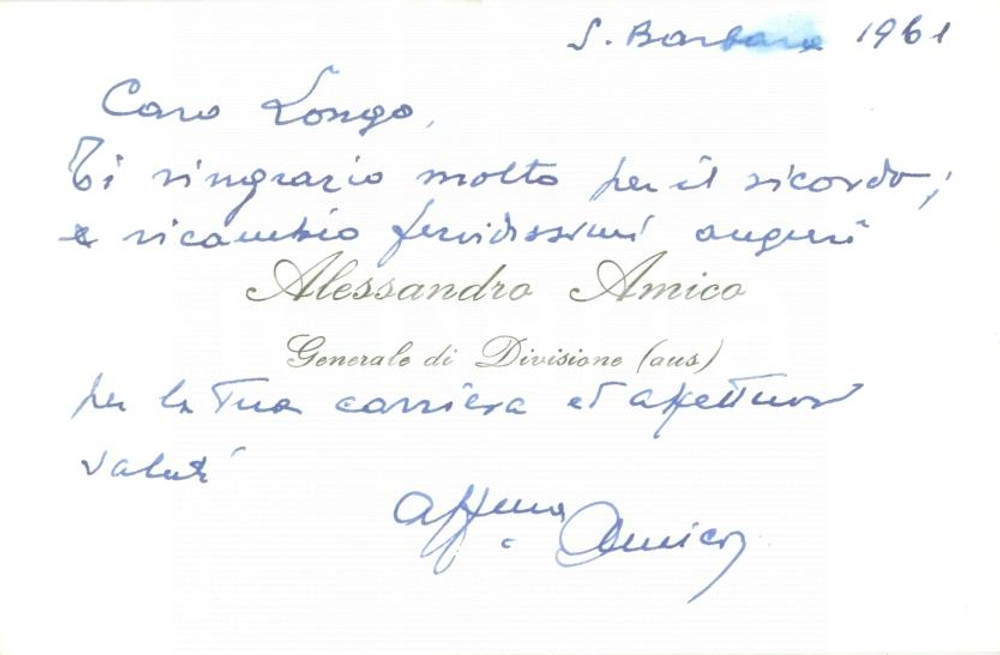 S. Barbara 1961
Caro Longo,
Ti ringrazio molto per il ricordo;
e ricambio fervidissimi auguri
Alessandro Amico
Generale di Divisione (aus)
per la Tua carriera et affettuosi
saluti
Amico